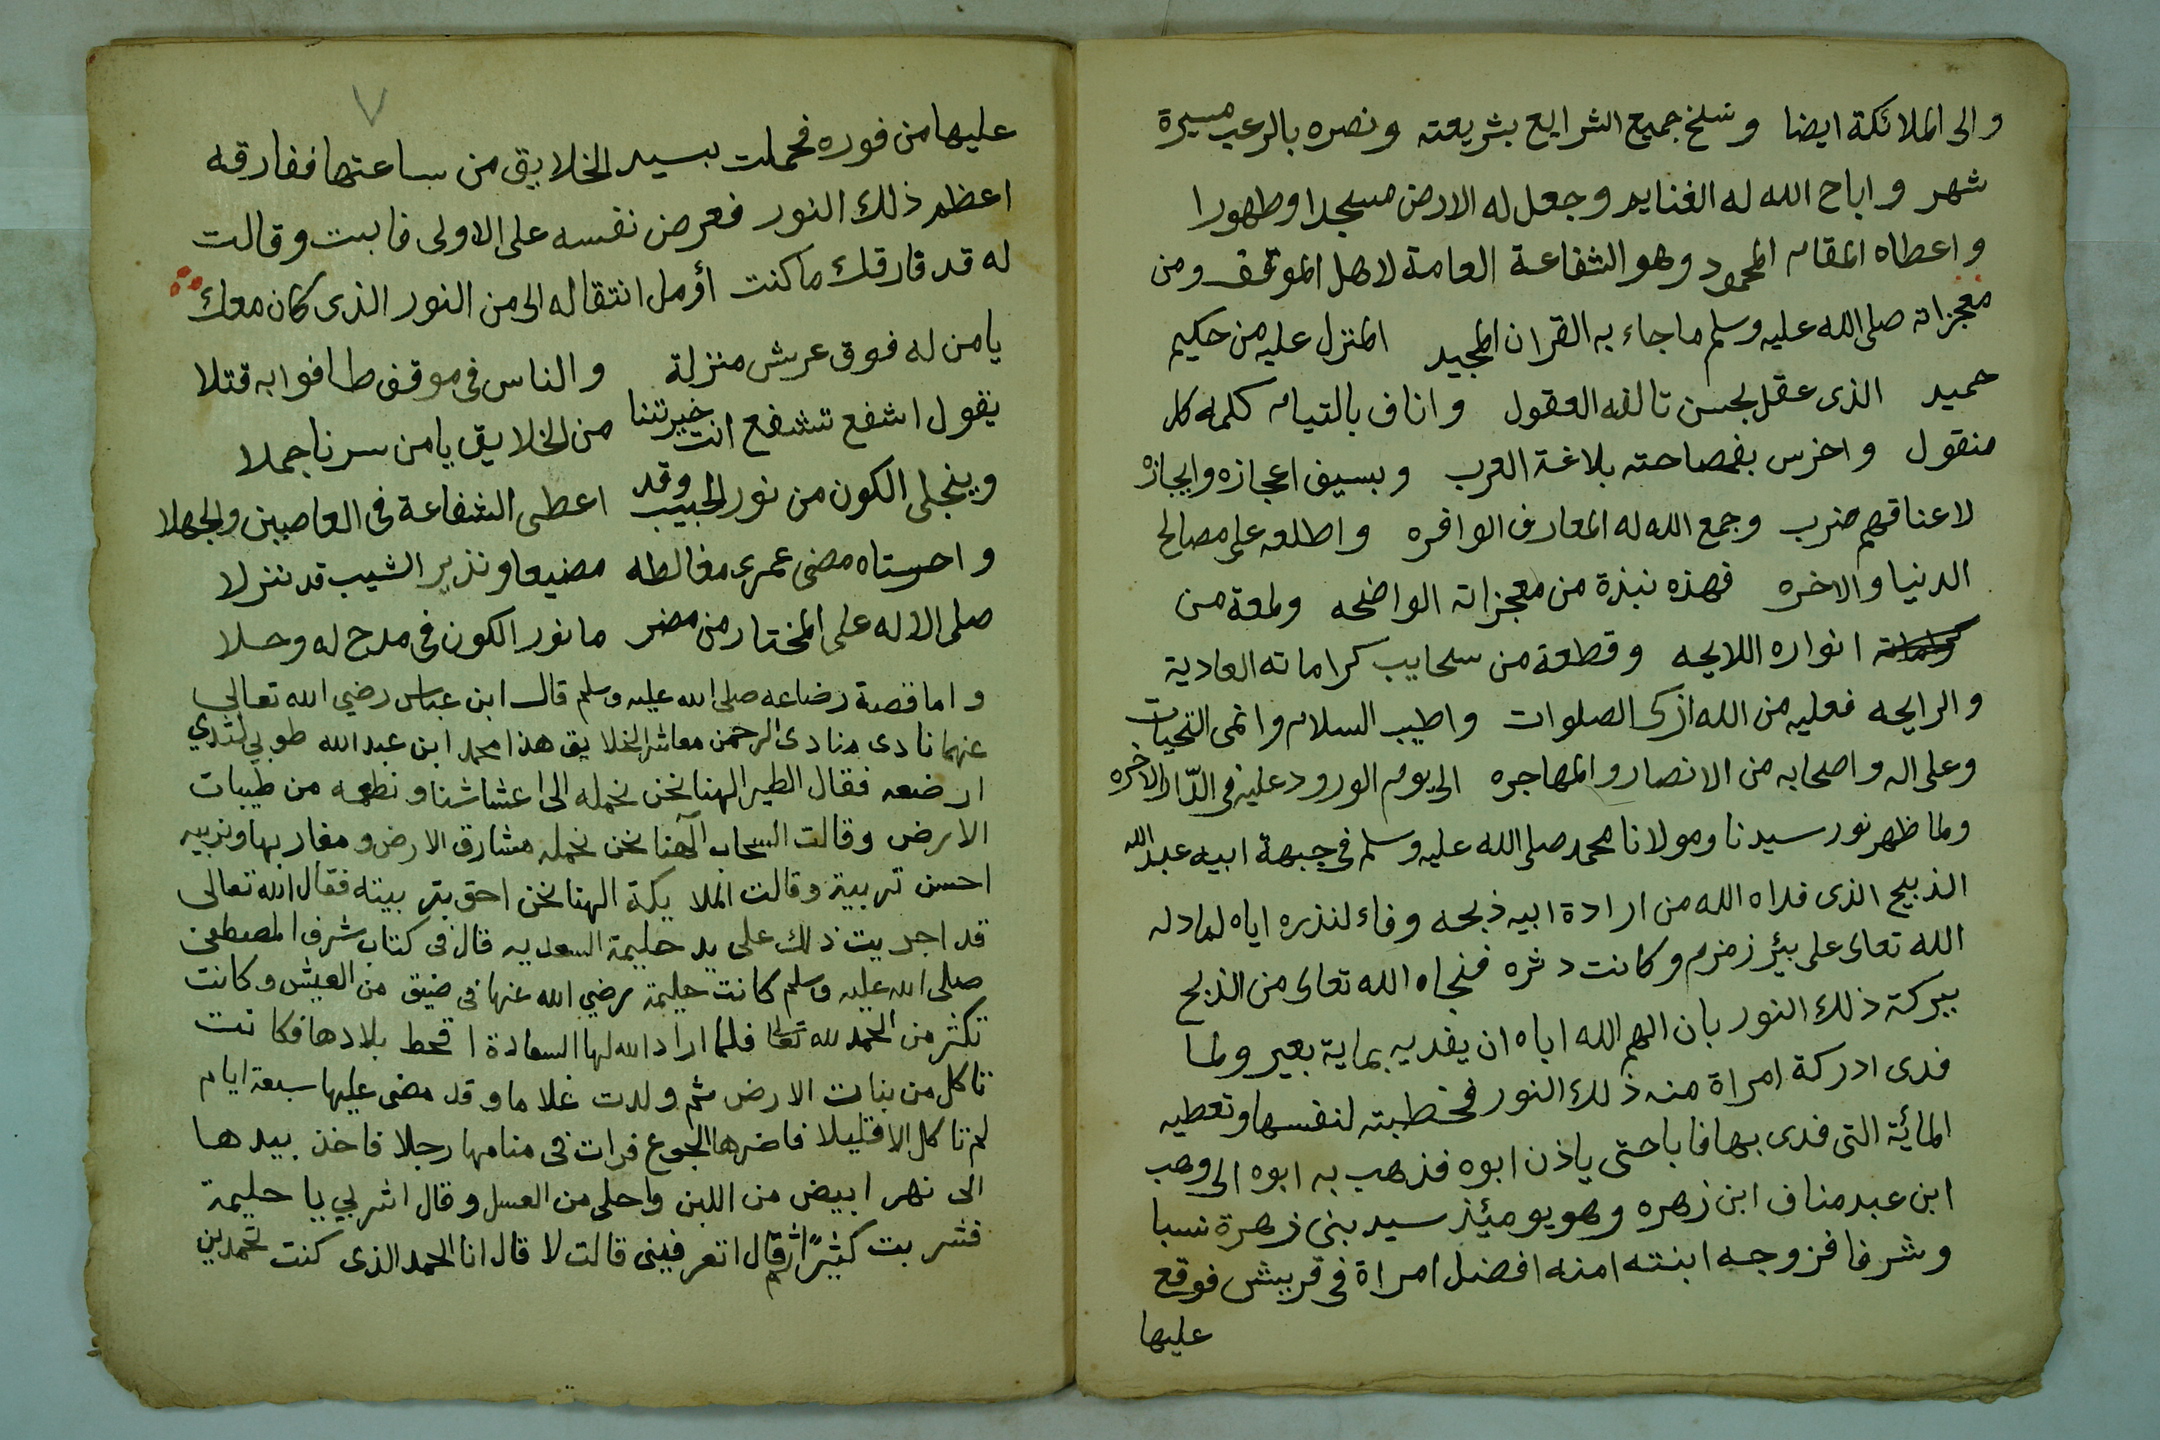 والى الملائكة ايضا ونسخ جميع الشرايع بشريعته ونصره بالرعب مسيرة
شهر واباح الله له الغنايم وجعل له الارض مسجدا وطهورا
واعطاه المقام المحمود وهو الشفاعة العامة لاهل الموقف ومن
معجزاته صلى الله عليه وسلم ماجاء به القران المجيد المنزل عليه من حكيم
حميد الذى عقل بحسن تالفه العقول واناف بالتيام كلمه كل
منقول واخرس بفصاحته بلاغة العرب وبسيف اعجازه وايجازه
لاعناقهم ضرب وجمع الله له المعارف الوافره واطلعه على مصالح
الدنيا والاخره فهذه نبذة من معجزاته الواضحه ولمعة من
انواره اللايحه وقطعة من سحايب كراماته الغادية
والرايحه فعليه من الله ازكى الصلوات واطيب السلام وانمى التحيات
وعلى اله واصحابه من الانصار والمهاجره الى يوم الورود عليه فى الدّار الاخره
ولما ظهر نور سيدنا ومولانا محمد صلى الله عليه وسلم فى جبهة ابيه عبد الله
الذبيح الذى فداه الله من ارادة ابيه ذبحه وفاء لنذره اياه لما دله
الله تعالى على بئر زمزم وكانت دثره فنجاه الله تعالى من الذبح
ببركة ذلك النور بان الهم الله اباه ان يفديه بماية بعير ولما
فدى ادركة امراة منه ذلك النور فخطبته لنفسها وتعطيه
المائة التى فدى بها فابا حتى ياذن ابوه فذهب به ابوه الى وهب
ابن عبد مناف ابن زهره وهو يومئذ سيد بنى زهرة نسبا
وشرفا فزوجه ابنته امنه افضل امراة فى قريش فوقع
عليها
عليها من فوره فحملت بسيد الخلايق من ساعتها ففارقه
اعظم ذلك النور فعرض نفسه على الاولى فابت وقالت
له قد فارقك ما كنت أؤمل انتقاله الى من النور الذى كان معك
يامن له فوق عرش منزلة والناس فى موقف طافوا به قتلا
يقول اشفع تشفع انت خيرتنا من الخلايق يامن سرنا جملا
وينجلى الكون من نور الحبيب وقد اعطى الشفاعة فى العاصين والجهلا
واحسرتاه مضى عمرى مغالطه مضيعا ونذير الشيب قد نزلا
صلى الاله على المختار من مضر مانور الكون فى مدح له وحلا
واما قصة رضاعه صلى الله عليه وسلم قال ابن عباس رضي الله تعالى
عنهما نادى منادى الرحمن معاشر الخلايق هذا محمد ابن عبد الله طوبي لثدي
ارضعه فقال الطير الهنا نحن نحمله الى اعشاشنا ونطعمه من طيبات
الارض وقالت السحاب آلهنا نحن نحمله مشارق الارض ومغاربها ونربيه
احسن تربية وقالت الملايكة الهنا نحن احق بتربيته فقال الله تعالى
قد اجريت ذلك على يد حليمة السعديه قال فى كتاب شرف المصطفى
صلى الله عليه وسلم كانت حليمة رضي الله عنها فى ضيق من العيش وكانت
تكثر من الحمد لله تعالى فلما اراد الله لها السعادة اقحط بلادها فكانت
تاكل من بنات الارض ثم ولدت غلاما وقد مضى عليها سبعة ايام
لم تاكل الا قليلا فاضرها الجوع فرات فى منامها رجلا فاخذ بيدها
الى نهر ابيض من اللبن واحلى من العسل وقال اشربي يا حليمة
فشربت كثيرًا ثم قال اتعرفينى قالت لا قال انا الحمد الذى كنت تحمدين